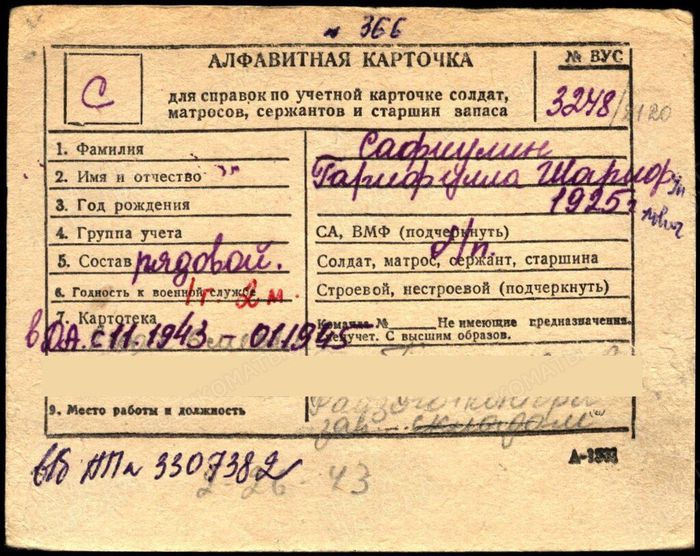 № 366
АЛФАВИТНАЯ КАРТОЧКА
№ ВУС
С
для справок по учетной карточке солдат,
матросов, сержантов и старшин запаса
3248/2120
1. Фамилия
Сафиулин
2. Имя и отчество
Гарифулла Шариф
3. Год рождения
1925 г
4. Группа учета
СА, ВМФ (подчеркнуть)
5. Состав рядовой.
Солдат, матрос, сержант, старшина
6. Годность к военной службе
Строевой, нестроевой (подчеркнуть)
7. Картотека
Команда № Не имеющие предназначения.
Спецучет. С высшим образов.
с 11.1943 - 01.1943
9. Место работы и должность
зав. складом
3307382
2-26 43
А-1331